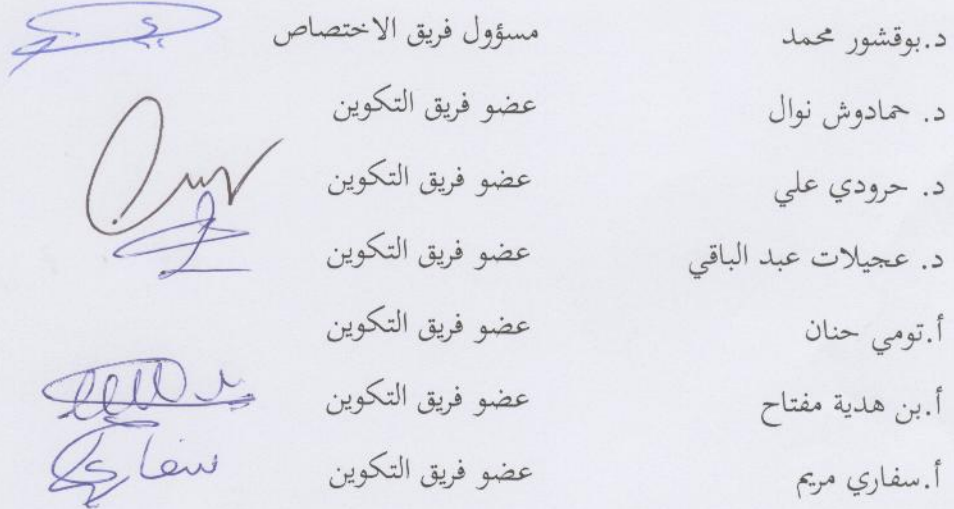 د.بوقشور محمد مسؤول فريق الاختصاص
د. حمادوش نوال عضو فريق التكوين
د. حرودي علي عضو فريق التكوين
د. عجيلات عبد الباقي عضو فريق التكوين
أ.تومي حنان عضو فريق التكوين
أ.بن هدية مفتاح عضو فريق التكوين
أ.سفاري مريم عضو فريق التكوين سفاري